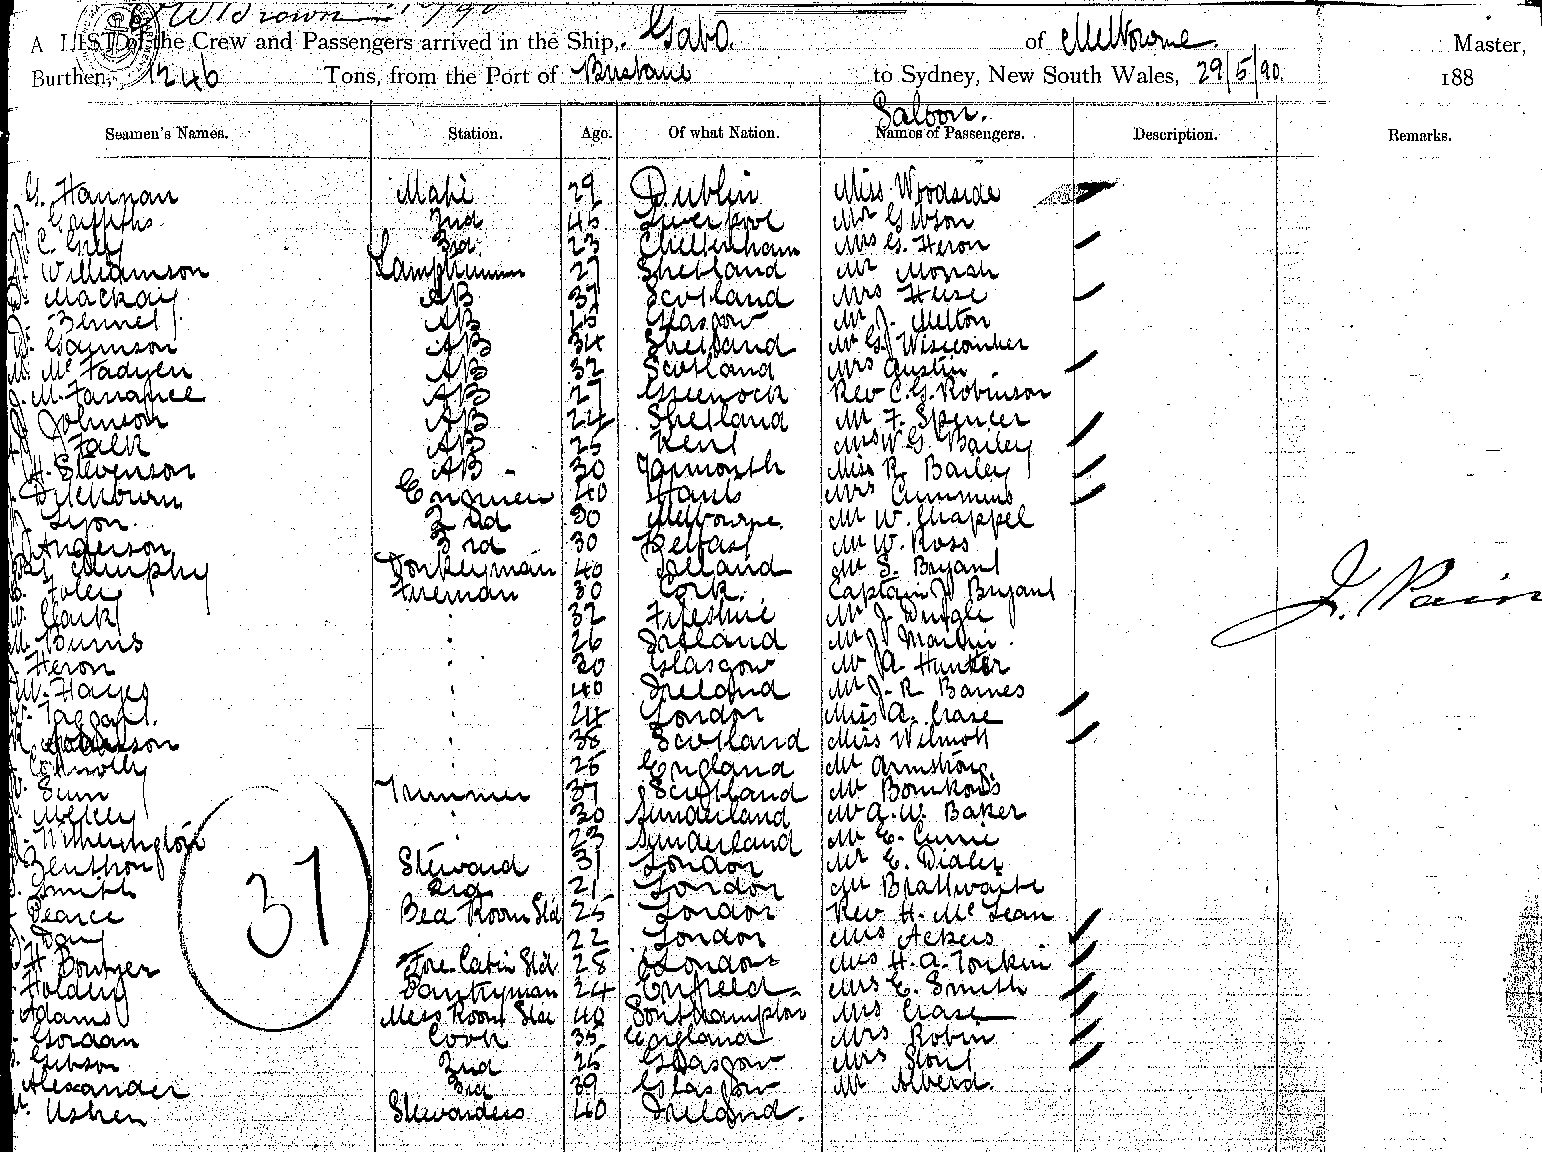 W Brown
A LIST of the Crew and Passengers arrived in the Ship, Gabo. of Melbourne. Master,
Burthen, 1246 Tons, from the Port of Brisbane to Sydney, New South Wales, 29/5/90. 188
Saloon.
Seamen's Names. Station. Age. Of what Nation. Names of Passengers. Description. Remarks.
G. Hannan Mate 29 Dublin Miss Woodside
Griffiths 2nd 45 Liverpool Mr Gibson
C Grey 3rd 23 Cheltenham Mrs G. Heron
Williamson Lamptrimmer 27 Shetland Mr Morish
Mackay AB 37 Scotland Mrs Heise
Bennet AB 25 Glasgow Mr J. Melton
Gaunson AB 34 Shetland Mr G. Wiscomber
Mc Fadyen AB 32 Scotland Mrs Austin
M. Fanafiee AB 27 Greenock Rev C. G. Robinson
Johnson AB 24 Shetland Mr F. Spencer
Falk AB 25 Kent Mrs W. G. Bailey
H. Stevenson AB 30 Yarmouth Miss R. Bailey
Ditchburn Engineer 40 Hants Mrs Cummins
Lyon 2nd 30 Melbourne. Mr W. Chappel
Anderson 3rd 30 Belfast Mr W. Ross
Murphy Donkeyman 40 Ireland Mr S. Bryant
Foley Fireman 30 Cork. Captain J. Bryant
Clark 32 Fifeshire Mr J. Dingle
Burns 26 Ireland Mr J. Martin.
Heron 30 Glasgow Mr A Hunter
W. Hayes 40 Ireland Mr J. R. Barnes
Taggart. 24 London Miss A. Crase
Robinson 38 Scotland Miss Wilmott
Connolly 26 England Mr Armstrong.
Trimmer 37 Scotland Mr
30 Sunderland Mr A. W. Baker
Witherington 23 Sunderland Mr E. Currie
Benthon Steward 31 London Mr E. Didler
Smith 2nd 21 London Mr Brathwaite
Pearce Bed Room Std 25 London Rev H. McLean
Day 22 London Mrs Ackers
H Bowyer Fore Cabin Std 28 London Mrs H. A. Tonkin
Holding Pantryman 24 Enfield Mrs E. Smith
Adams Mess Room Std 40 Southampton Mrs Crase
Gordan Cook 35 England Mrs Robin
Gibson 2nd 25 Glasgow Mrs Stout
Alexander 3rd 39 Glasgow Mr Alverd.
Usher Stewardess 40 Ireland.
37
J. Pain